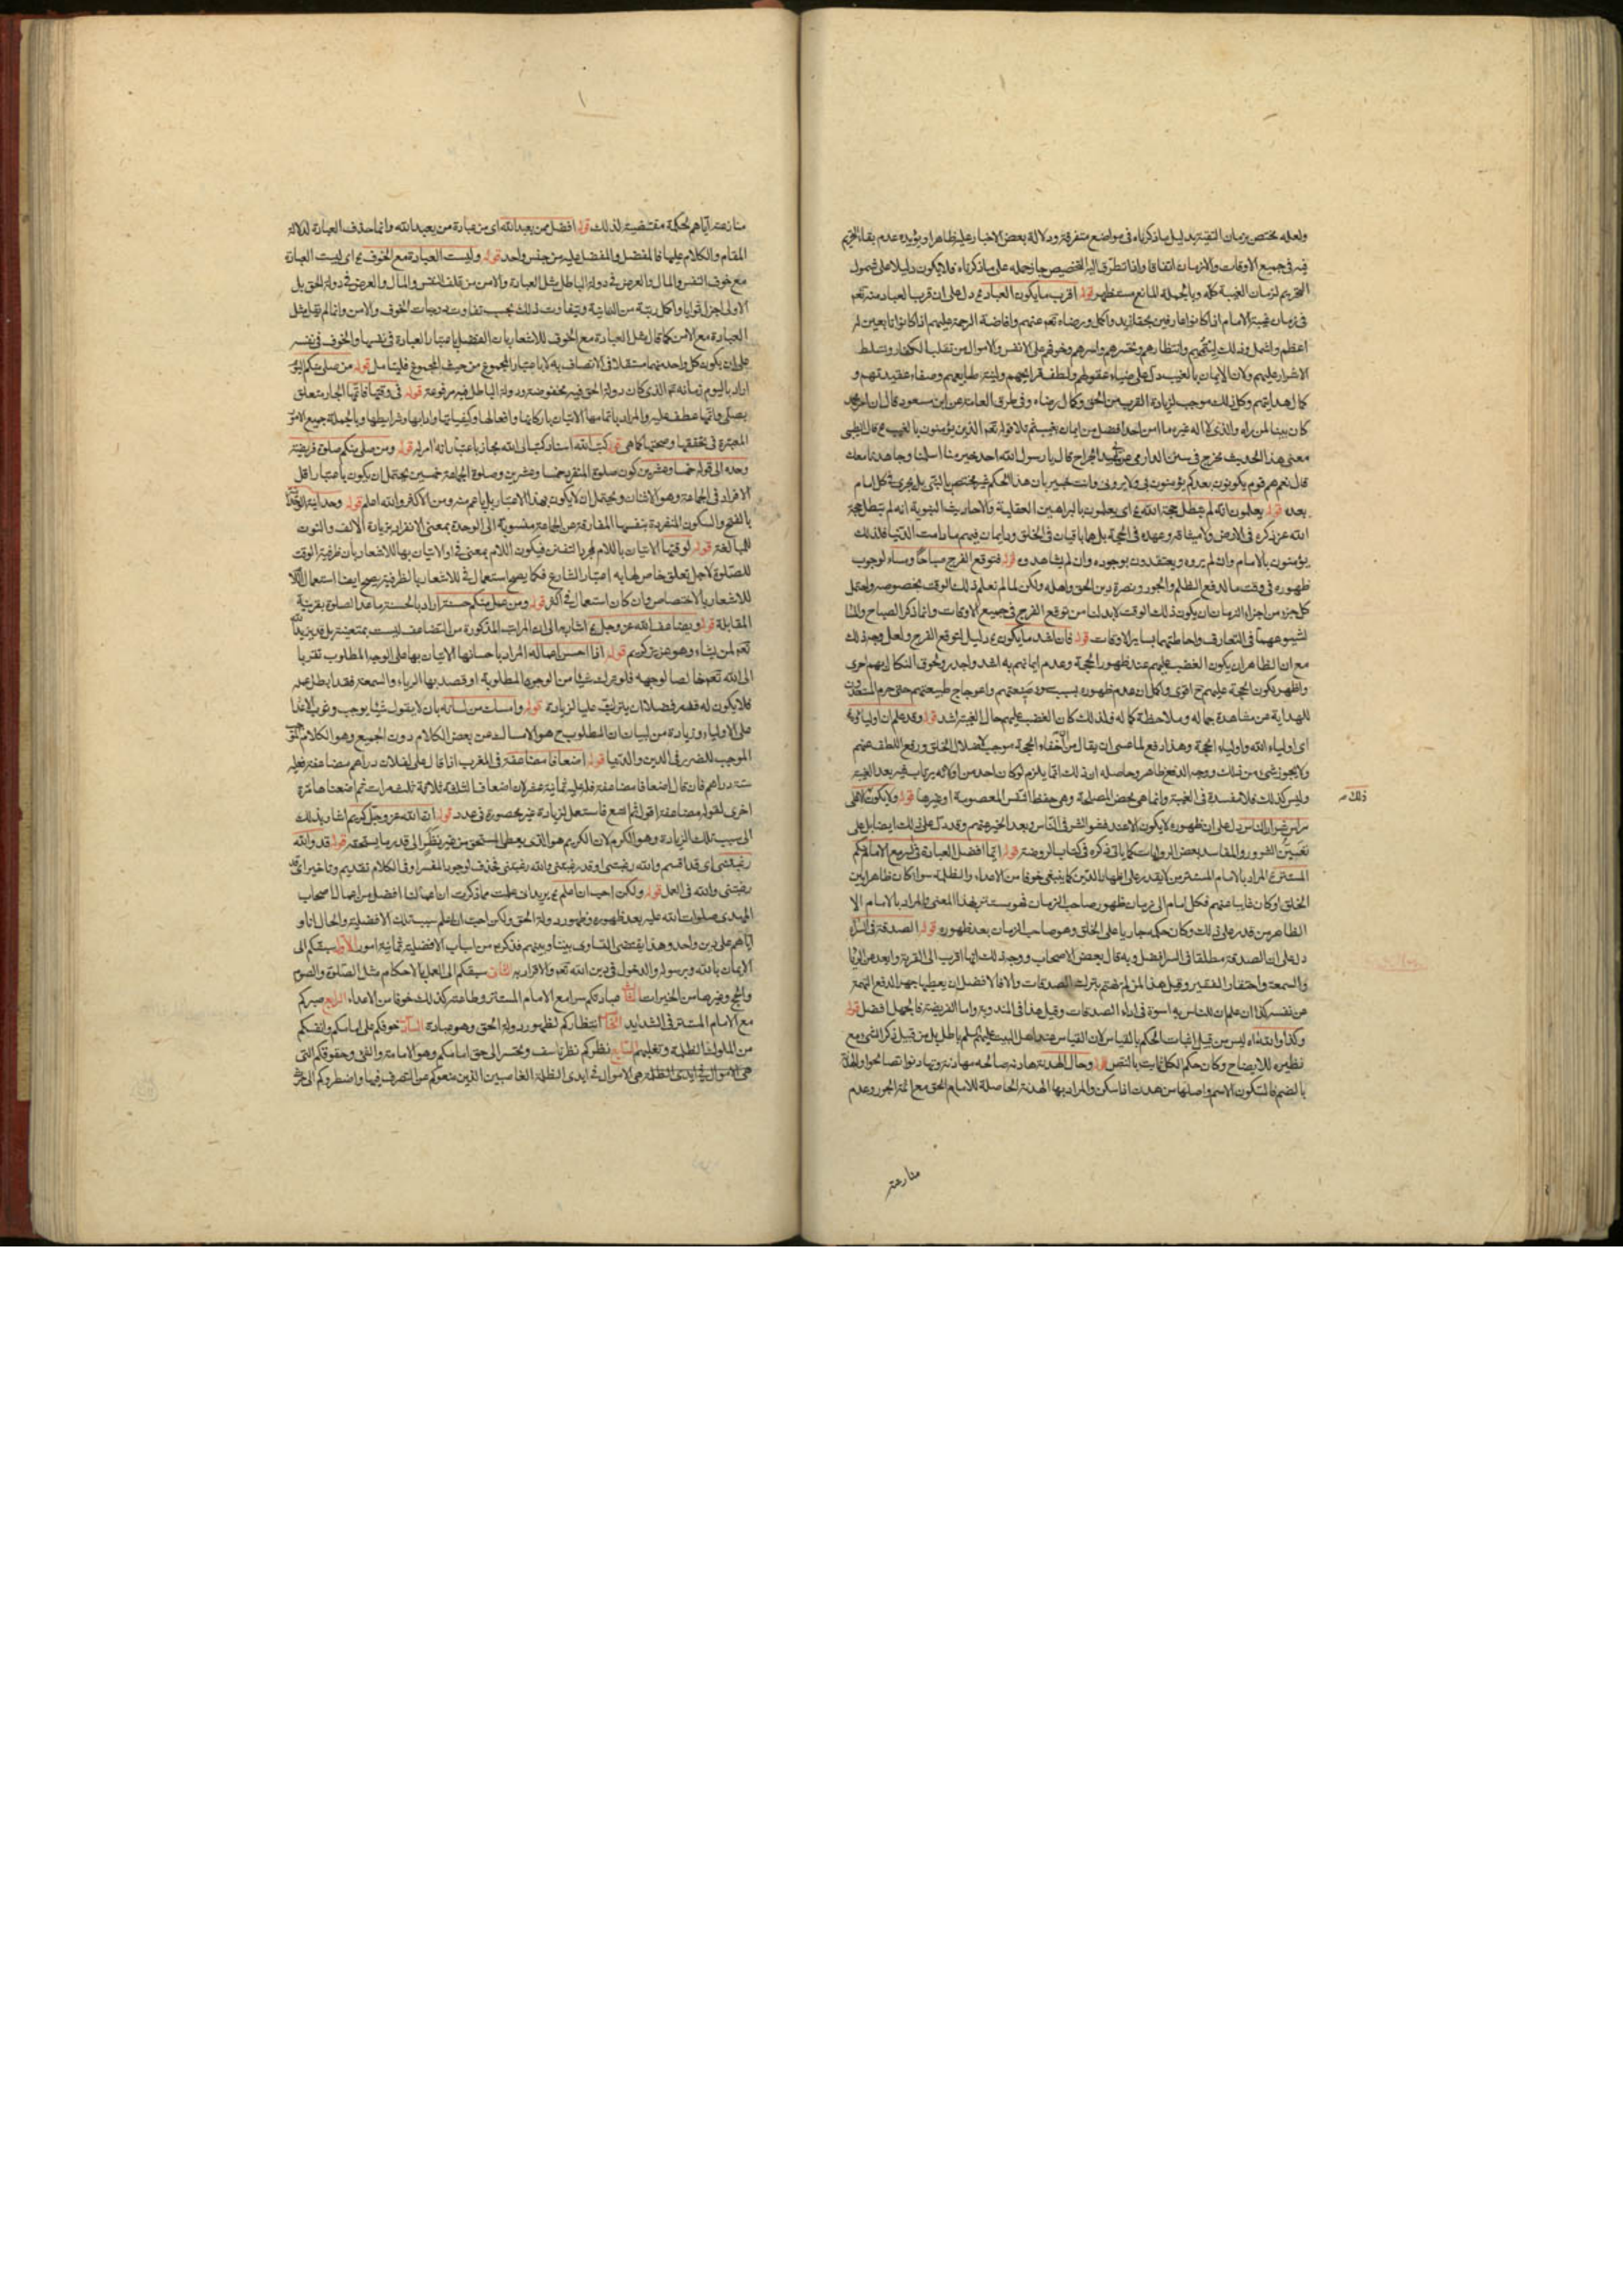 ولعله مختص بزمان التقية بدليل ما ذكرناه فى مواضع متفرقة ودلالة بعض الاخبار عليه ظاهرا ويؤيده عدم بقاء التحريم
فيه فى جميع الاوقات والازمان اتفاقا واذا تطرق اليه التخصيص جاز حمله على ما ذكرناه فلا يكون دليلا على شمول
التحريم لزمان الغيبة كله وبالجملة المانع مستظهر قوله اقرب ما يكون العباد دل على ان قرب العباد منه تعم
فى زمان غيبة الامام اذا كانوا عارفين بحقه ازيد واكمل ورضاه تعم عنهم وافاضة الرحمة عليهم اذا كانوا تابعين له
اعظم واشمل وذلك لتفجعهم وانتظارهم وتحسرهم واسرهم وخوفهم على الانفس والاموال من تغلب الكفار وتسلط
الاشرار عليهم ولان الايمان بالغيب دل على ضياء عقولهم ولطف قرايحهم ولينة طبايعهم وصفاء عقيدتهم و
كمال هدايتهم وكل ذلك موجب لزيادة القرب من الحق وكمال رضاه وفى طرق العامة عن ابن مسعود قال ان امر محمد
كان بينا لمن رآه والذى لا اله غيره ما امن احد افضل من ايمان بغيب ثم تلا قوله تعم الذين يؤمنون بالغيب قال الطيبى
معنى هذا الحديث مخرج فى سنن الدارمى عن ابى عبيدة الجراح قال يا رسول الله احد خير منا اسلمنا وجاهدنا معك
قال نعم هم قوم يكونون بعدكم يؤمنون بى ولم يرونى وانت خبير بان هذا الحكم غير مختص بالنبى بل يجرى فى كل امام
بعده قوله يعلمون انه لم تبطل حجة الله اى يعلمون بالبراهين العقلية والاحاديث النبوية انه لم تبطل حجة
الله عز ذكره فى الارض ولا ميثاقه وعهده فى الحجة بل هما باقيان فى الخلق ودايمان فيهم ما دامت الدنيا فلذلك
يؤمنون بالامام وان لم يروه ويعتقدون بوجوده وان لم يشاهدوه قوله فتوقع الفرج صباحا ومساء لوجوب
ظهوره فى وقت ما لدفع الظلم والجور ونصرة دين الحق واهله ولكن لما لم نعلم ذلك الوقت بخصوصه واحتمل
كل جزء من اجزاء الزمان ان يكون ذلك الوقت لابد لنا من توقع الفرج فى جميع الاوقات وانما ذكر الصباح والمساء
لشيوعهما فى التعارف واحاطتهما بساير الاوقات قوله فان اشد ما يكون دليل لتوقع الفرج ولعل وجه ذلك
مع ان الظاهر ان يكون الغضب عليهم عند ظهور الحجة وعدم ايمانهم به اشد واجدر ولحوق النكال بهم احرى
واظهر لكون الحجة عليهم ح اقوى واكمل ان عدم ظهوره بسبب سوء صنيعتهم واعوجاج طبيعتهم حتى حرم المستعدون
للهداية عن مشاهدة جماله وملاحظة كماله فلذلك كان الغضب عليهم حال الغيبة اشد قوله وقد علم ان اولياءه
اى اولياء الله واولياء الحجة وهذا دفع لما عسى ان يقال من ان اخفاء الحجة موجب لاضلال الخلق ورفع اللطف عنهم
ولا يجوز شىء من ذلك ووجه الدفع ظاهر وحاصله ان ذلك انما يلزم لو كان احد من اوليائه يرتاب فيه بعد الغيبة
وليس كذلك فلا مفسدة فى الغيبة وانما هى محض المصلحة وهى حفظ النفس المعصومة او غيرها قوله ولا يكون ذلك الا على
راس شرار الناس دل على ان ظهوره لا يكون الا عند فشو الشر فى الناس وبعد الخير عنهم وقد دل على ذلك ايضا بل على
تعيين الشرور والمفاسد بعض الروايات كما ياتى ذكره فى كتاب الروضة قوله ايما افضل العبادة فى السر مع الامام منكم
المستتر المراد بالامام المستتر من لا يقدر على اظهار الدين كما ينبغى خوفا من الاعداء والظلمة سواء كان ظاهرا بين
الخلق او كان غايبا عنهم فكل امام الى زمان ظهور صاحب الزمان فهو مستتر بهذا المعنى والمراد بالامام الا
الظاهر من قدر على ذلك وكان حكمه جاريا على الخلق وهو صاحب الزمان بعد ظهوره قوله الصدقة فى السر
دل على ان الصدقة مطلقا فى السر افضل وبه قال بعض الاصحاب ووجه ذلك انها اقرب الى القربة وابعد من الريا
والسمعة واحتقار الفقير وقيل هذا لمن لم يتهم بترك الصدقات والا فالافضل ان يعطيها جهرا لدفع التهمة
عن نفسه وكذا ان علم ان للناس به اسوة فى اداء الصدقات وقيل هذا فى المندوبة واما الفريضة فالجهر افضل قوله
وكذا والله ليس من قبيل اثبات الحكم بالقياس لان القياس عند اهل البيت عليهم السلم باطل بل من قبيل ذكر الشىء مع
نظيره للايضاح وكان حكم الكل ثابت بالنص قوله وحال الهدنة هادنه صالحه مهادنة وتهادنوا تصالحوا والهدنة
بالضم فالسكون الاسم واصلها من هدن اذا سكن والمراد بها الهدنة الحاصلة للامام الحق مع ائمة الجور وعدم
ذلك
منازعته
منازعته اياهم لحكمة مقتضية لذلك قوله افضل ممن يعبد الله اى من عبادة من يعبد الله وانما حذف العبادة لدلالة
المقام والكلام عليها فالمفضل والمفضل عليه من جنس واحد قوله وليست العبادة مع الخوف اى ليست العبادة
مع خوف النفس والمال والعرض فى دولة الباطل مثل العبادة والامن من تلف النفس والمال والعرض فى دولة الحق بل
الاولى اجزل ثوابا واكمل رتبة من الثانية ويتفاوت ذلك بحسب تفاوت درجات الخوف والامن وانما لم يقل مثل
العبادة مع الامن كما قال مثل العبادة مع الخوف للاشعار بان الفضل باعتبار العبادة فى نفسها والخوف فى نفسه
على ان يكون كل واحد منهما مستقلا فى الاتصاف به لا باعتبار المجموع من حيث المجموع فليتامل قوله من صلى منكم اليوم
اراد باليوم زمانه الذى كان دولة الحق فيه مخفوضة ودولة الباطل فيه مرفوعة قوله فى وقتها فاتمها الجار متعلق
بصلى واتمها عطف عليه والمراد باتمامها الاتيان باركانها وافعالها وكيفياتها وادابها وشرايطها وبالجملة جميع الامور
المعتبرة فى تحققها وصحتها كما هى قوله كتب الله اسناد كتب الى الله مجاز باعتبار انه امر به قوله ومن صلى منكم صلوة فريضة
وحده الى قوله خمسا وعشرين كون صلوة المنفرد خمسا وعشرين وصلوة الجماعة خمسين يحتمل ان يكون باعتبار اقل
الافراد فى الجماعة وهو الاثنان ويحتمل ان لا يكون بهذا الاعتبار بل باعم منه ومن الاكثر والله اعلم قوله وحدانية الوحدة
بالفتح والسكون المنفردة بنفسها المفارقة عن الجماعة منسوبة الى الوحدة بمعنى الانفراد بزيادة الالف والنون
للمبالغة قوله لوقتها الاتيان باللام لمجرد التفنن فيكون اللام بمعنى فى او الاتيان بها للاشعار بان ظرفية الوقت
للصلوة لاجل تعلق خاص لها به اعتبار الشارع فكما يصح استعمال فى للاشعار بالظرفية يصح ايضا استعمال اللام
للاشعار بالاختصاص وان كان استعمال فى اكثر قوله ومن عمل منكم حسنة اراد بالحسنة ما عدا الصلوة بقرينة
المقابلة قوله ويضاعف الله عز وجل اشار به الى ان المراتب المذكورة من التضاعف ليست بمتعينة بل قد يزيد الله
تعم لمن يشاء وهو عزيز كريم قوله اذا احسن اعماله المراد باحسانها الاتيان بها على الوجه المطلوب تقربا
الى الله تعم خالصا لوجهه فلو ترك شيئا من الوجوه المطلوبة او قصد بها الرياء والسمعة فقد ابطل عمله
فلا يكون له فضل فضلا ان يترتب عليه الزيادة قوله وامسك من لسانه بان لا يقول شيئا يوجب وثوب الاعداء
على الاولياء وزيادة من لبيان ان المطلوب ح هو الامساك عن بعض الكلام دون الجميع وهو الكلام
الموجب للضرر فى الدين والدنيا قوله اضعافا مضاعفة فى المغرب اذا قال على لفلان دراهم مضاعفة فعليه
ستة دراهم فان قال اضعافا مضاعفة فله عليه ثمانية عشر لان اضعاف الثلاثة ثلاثة ثلث مرات ثم اضعفناها مرة
اخرى لقوله مضاعفة اقول ثم اتسع فاستعمل لزيادة غير محصورة فى عدد قوله ان الله عز وجل كريم اشار بذلك
الى سبب تلك الزيادة وهو الكرم لان الكريم هو الذى يعطى المستحق من غير نظر الى قدر ما يستحقه قوله قد والله
رغبتنى اى قد اقسم والله رغبتنى او قد رغبتنى والله رغبتنى فحذف لوجود المفسر او فى الكلام تقديم وتاخير اى قد
رغبتنى والله فى العمل قوله ولكن احب ان اعلم يريد انى علمت مما ذكرت ان اعمالنا افضل من اعمال اصحاب
المهدى صلوات الله عليه بعد ظهوره وظهور دولة الحق ولكن احب ان اعلم سبب تلك الافضلية والحال انا و
اياهم على دين واحد وهذا يقتضى التساوى بيننا وبينهم فذكر من اسباب الافضلية ثمانية امور الاول سبقكم الى
الايمان بالله وبرسوله والدخول فى دين الله تعم والاقرار به الثانى سبقكم الى العمل بالاحكام مثل الصلوة والصوم
والحج وغيرها من الخيرات الثالث عبادتكم سرا مع الامام المستتر وطاعته كذلك خوفا من الاعداء الرابع صبركم
مع الامام المستتر فى الشدايد الخامس انتظاركم لظهور دولة الحق وهو عبادة السادس خوفكم على امامكم وانفسكم
من الملوك الظلمة وتغلبهم السابع نظركم نظر تاسف وتحسر الى حق امامكم وهو الامامة والفىء وحقوقكم التى
هى الاموال فى ايدى الظلمة هى الاموال فى ايدى الظلمة الغاصبين الذين منعوكم عن التصرف فيها واضطروكم الى حرث